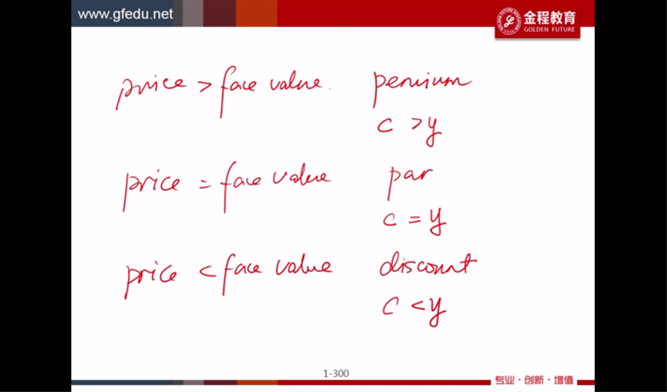 www.gfedu.net
金程教育
GOLDEN FUTURE
price > face value. penuium
c > y
price = face value par
c = y
price < face value discount
c < y
1-300
专业·创新·增值